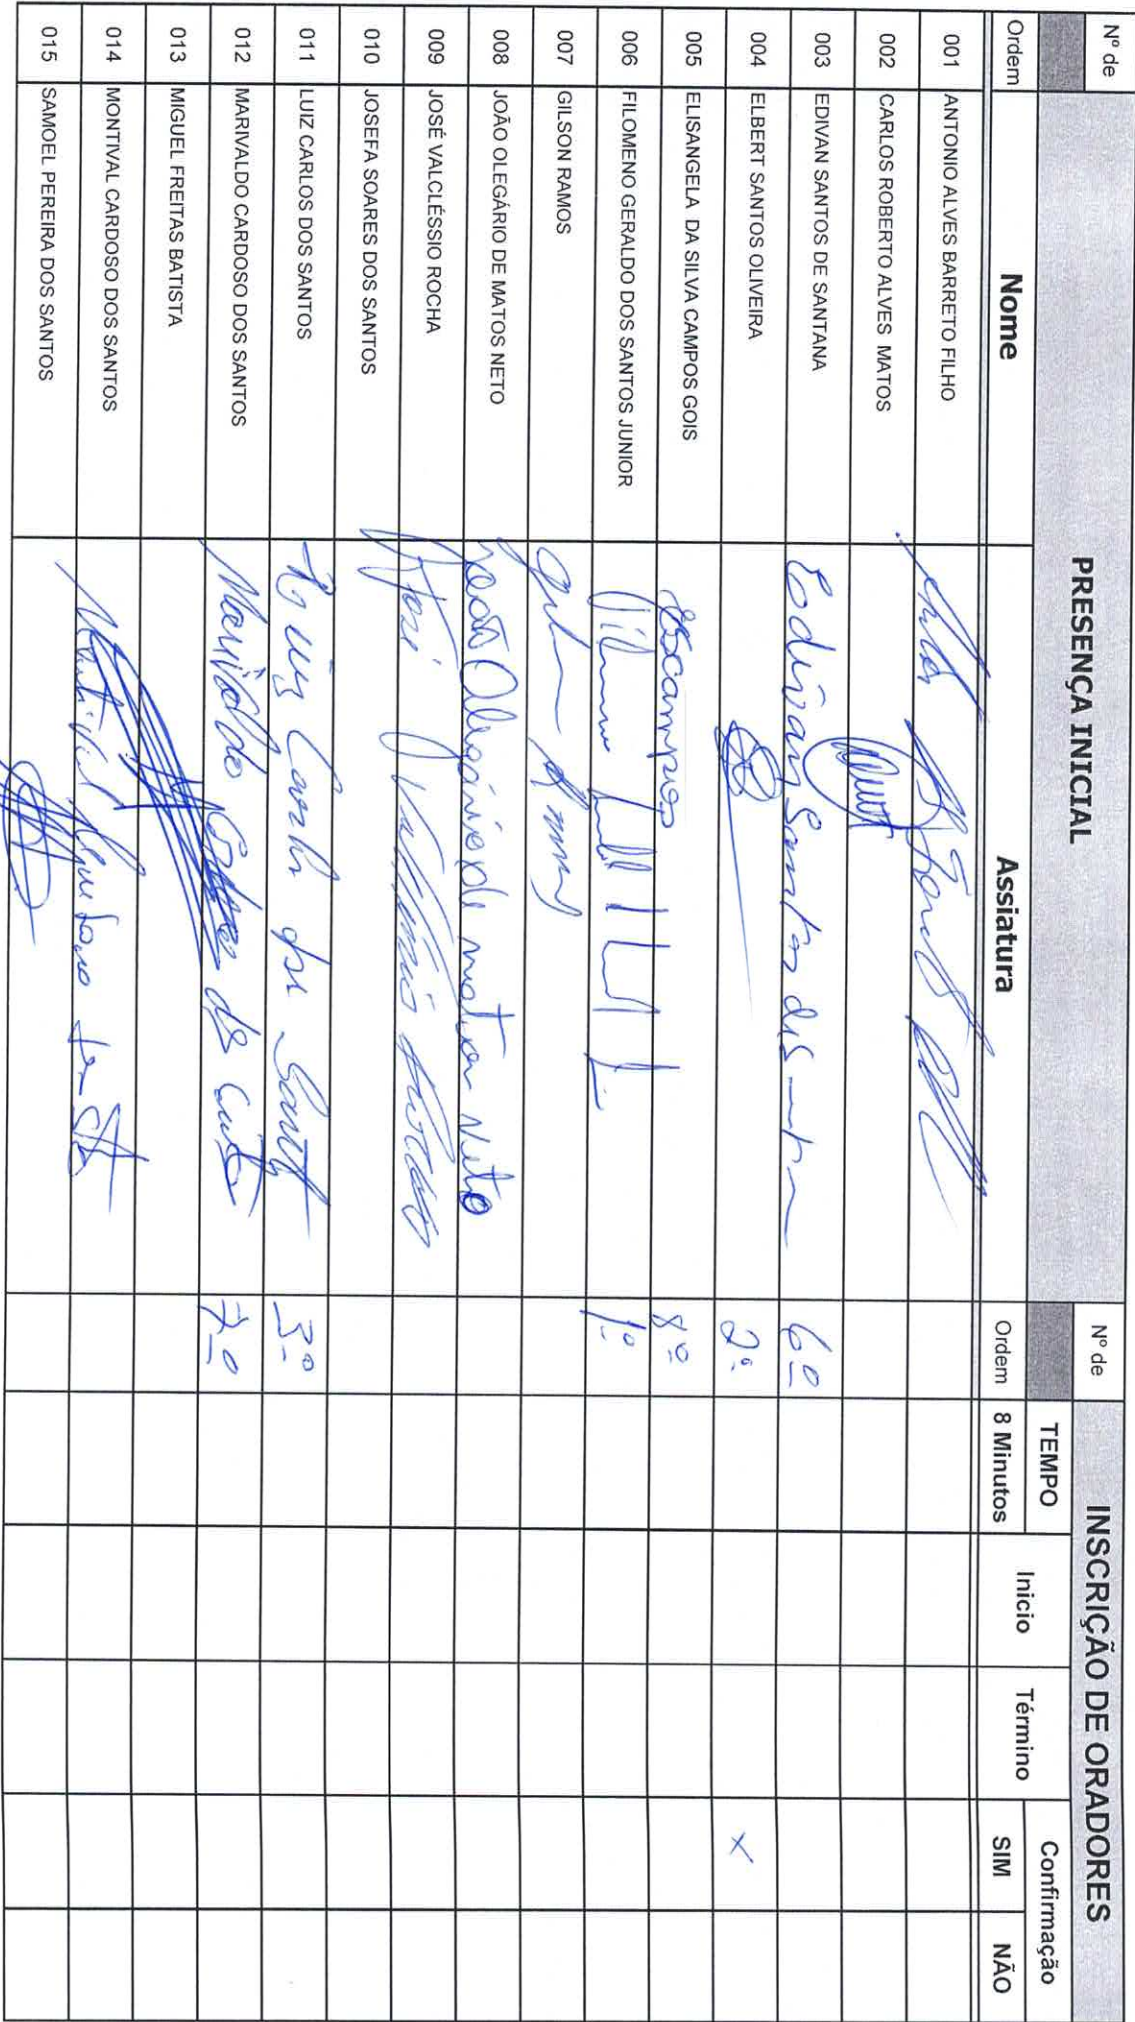 Nº de PRESENÇA INICIAL Nº de INSCRIÇÃO DE ORADORES
TEMPO Confirmação
Ordem Nome Assiatura Ordem 8 Minutos Inicio Término SIM NÃO
001 ANTONIO ALVES BARRETO FILHO
002 CARLOS ROBERTO ALVES MATOS
003 EDIVAN SANTOS DE SANTANA 6º
004 ELBERT SANTOS OLIVEIRA 2º x
005 ELISANGELA DA SILVA CAMPOS GOIS EScampos 8º
006 FILOMENO GERALDO DOS SANTOS JUNIOR 1º
007 GILSON RAMOS
008 JOÃO OLEGÁRIO DE MATOS NETO João Olegário de matos Neto
009 JOSÉ VALCLÉSSIO ROCHA José
010 JOSEFA SOARES DOS SANTOS
011 LUIZ CARLOS DOS SANTOS Luiz Carlos dos Santos 3º
012 MARIVALDO CARDOSO DOS SANTOS Marivaldo 7º
013 MIGUEL FREITAS BATISTA
014 MONTIVAL CARDOSO DOS SANTOS
015 SAMOEL PEREIRA DOS SANTOS